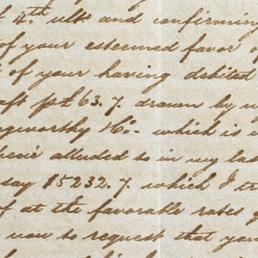 4th ulto and confirming
of your esteemed favor of
of your having debited
aft pr £63.7. drawn by
gworthy Ho- which is
alluded to in my las
say 15232.7. which I
of at the favorable rates
you to request that you